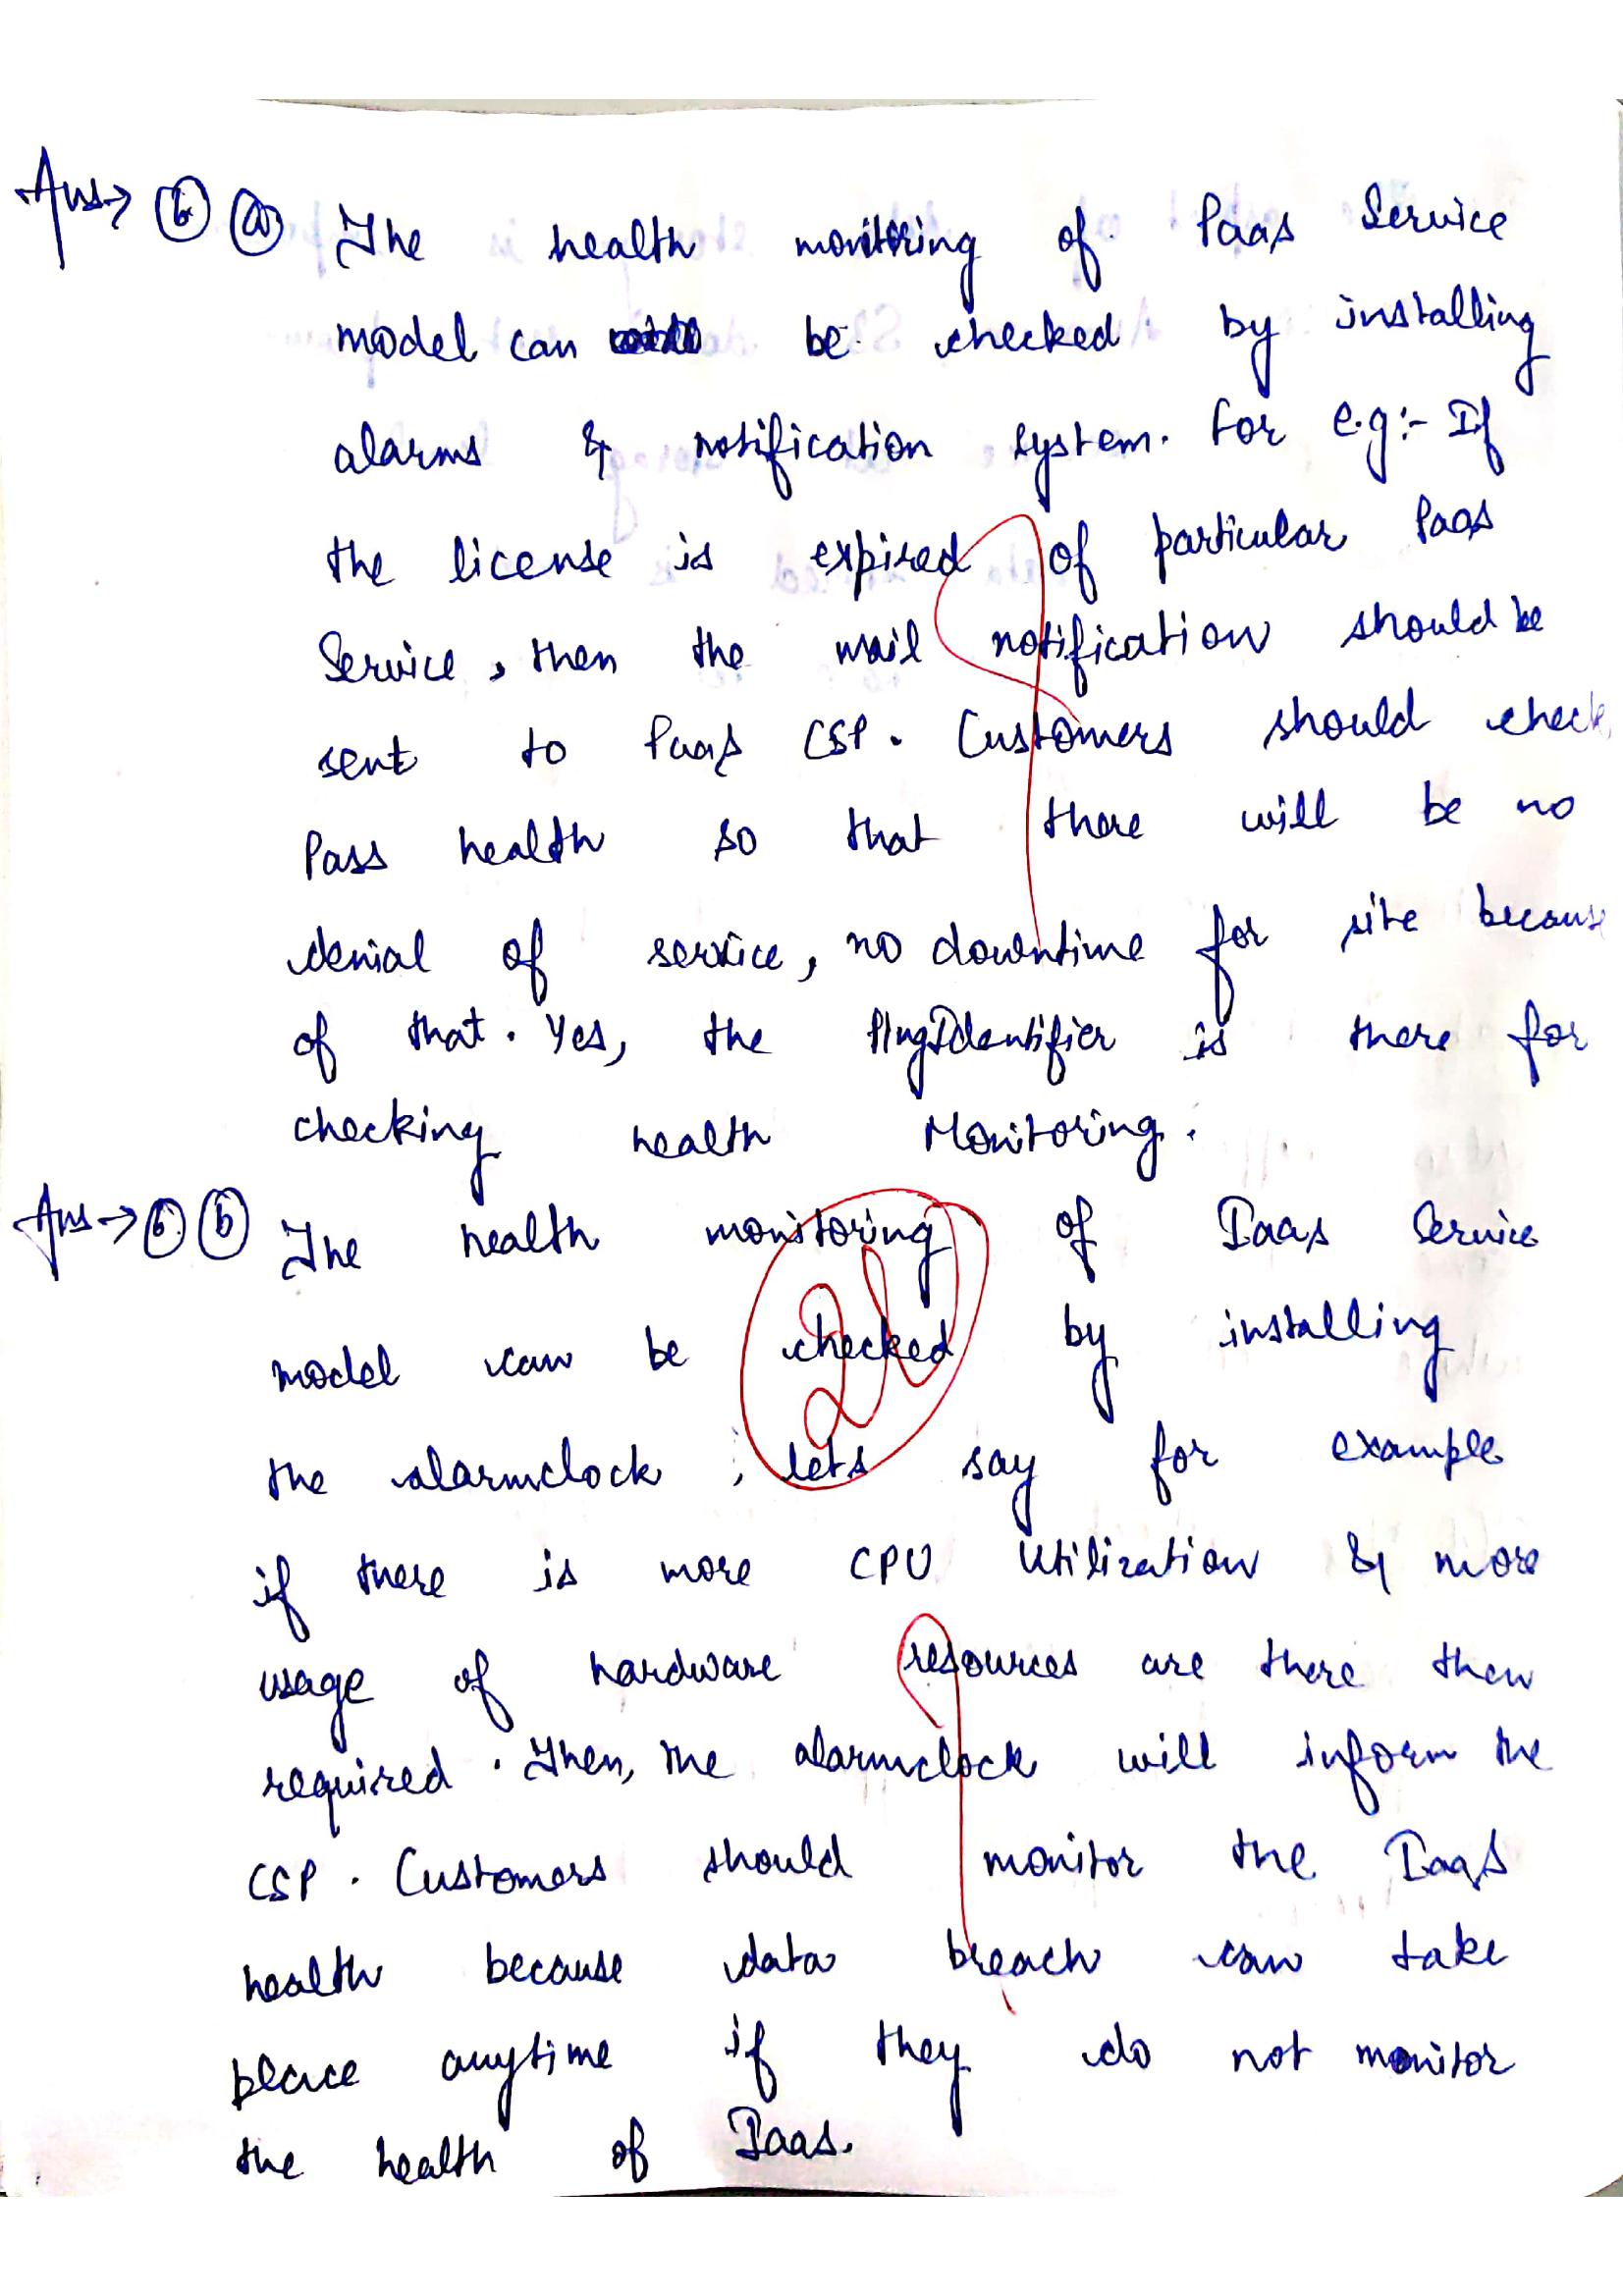 Ans→ 6 a The health monitoring of Paas Service
model can be checked by installing
alarms & notification system. For e.g:- If
the license is expired of particular Paas
Service, then the mail notification should be
sent to PaaS CSP. Customers should check
Pass health so that there will be no
denial of service, no downtime for site because
of that. Yes, the is there for
checking health Monitoring.
Ans→ 6 b The health monitoring of Iaas Service
model can be checked by installing
the alarmclock, lets say for example
if there is more CPU Utilization & more
usage of hardware resources are there then
required. Then, the alarmclock will inform the
CSP. Customers should monitor the IaaS
health because data breach can take
place anytime if they do not monitor
the health of Iaas.